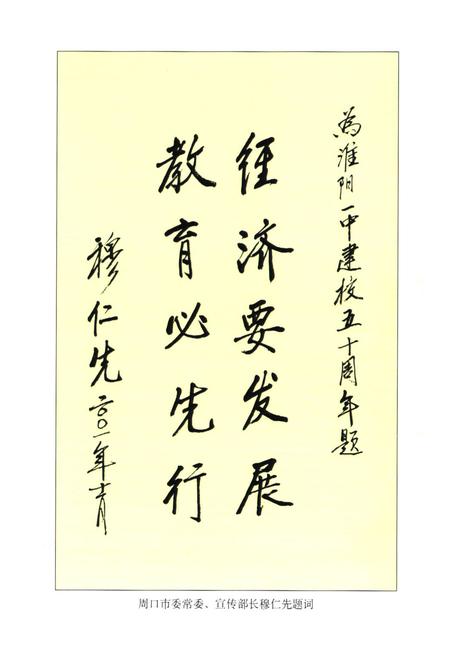 为淮阳一中建校五十周年题
经济要发展
教育必先行
穆仁先二〇〇一年十二月
周口市委常委、宣传部长穆仁先题词